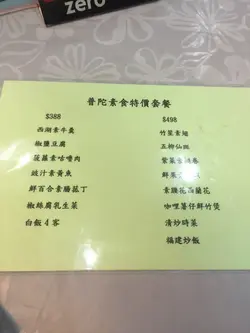 zero
普陀素食特價套餐
$388
西湖素牛羹
椒鹽豆腐
菠蘿素咕嚕肉
豉汁素黃魚
鮮百合素腰菰丁
椒絲腐乳生菜
白飯4客
$498
竹笙素翅
五柳仙斑
紫菜
鮮果
素腰花西蘭花
咖哩薯仔鮮竹煲
清炒時菜
福建炒飯